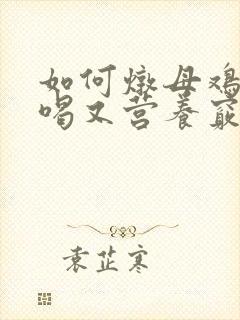 如何燉母鸡
喝又营养
袁芷寒